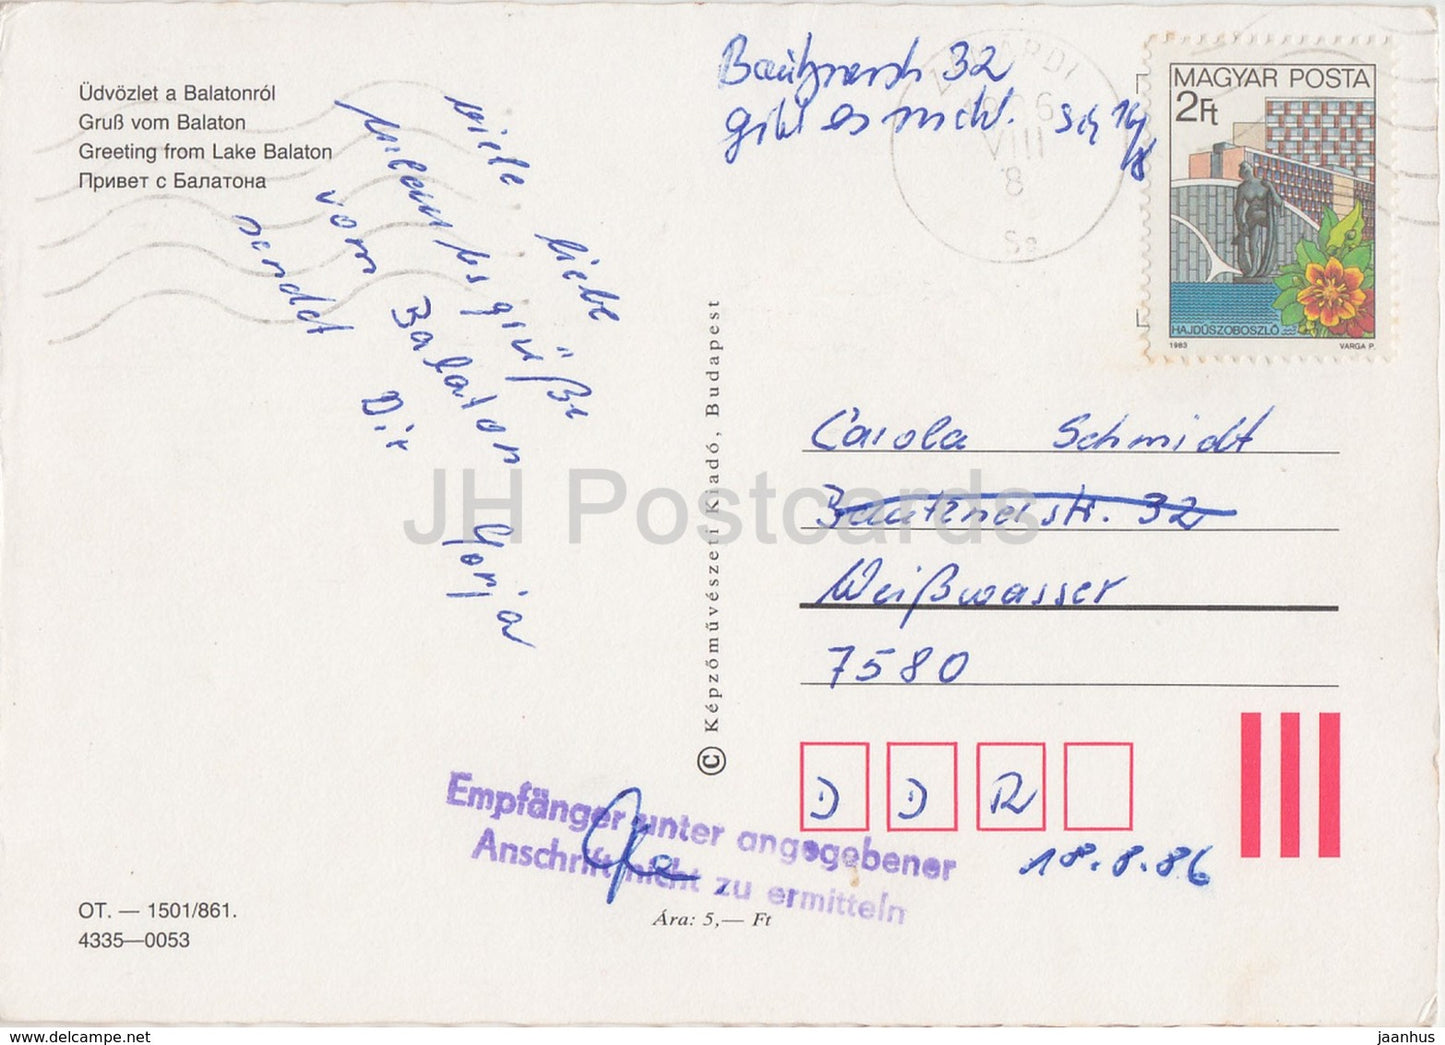 Üdvözlet a Balatonról
Gruß vom Balaton
Greeting from Lake Balaton
Привет с Балатона
viele liebe
Urlaubsgrüße
vom Balaton
sendet Dir Sonja
OT. — 1501/861.
4335—0053
Ára: 5,— Ft
© Képzőművészeti Kiadó, Budapest
32
gibt es nicht.
ZAMÁRDI
VIII
8
MAGYAR POSTA
2Ft
HAJDÚSZOBOSZLÓ
1983 VARGA P.
Carola Schmidt
Bautznerstr. 32
Weißwasser
7580
D D R
18.8.86
Empfänger unter angegebener
Anschrift nicht zu ermitteln
JH Postcards
https://www.delcampe.net
jaanhus